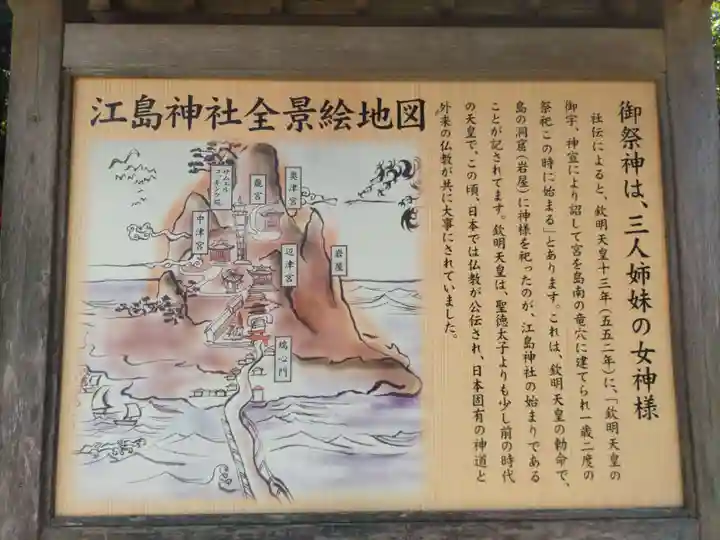 江島神社全景絵地図
御祭神は、三人姉妹の女神様
社伝によると、欽明天皇十三年（五五二年）に、「欽明天皇の
御宇、神宣により詔して宮を島南の竜穴に建てられ一歳二度の
祭祀この時に始まる」とあります。これは、欽明天皇の勅命で、
島の洞窟（岩屋）に神様を祀ったのが、江島神社の始まりである
ことが記されてます。欽明天皇は、聖徳太子よりも少し前の時代
の天皇で、この頃、日本では仏教が公伝され、日本固有の神道と
外来の仏教が共に大事にされていました。
サムエル
コッキング苑
龍宮
奥津宮
中津宮
辺津宮
岩屋
瑞心門